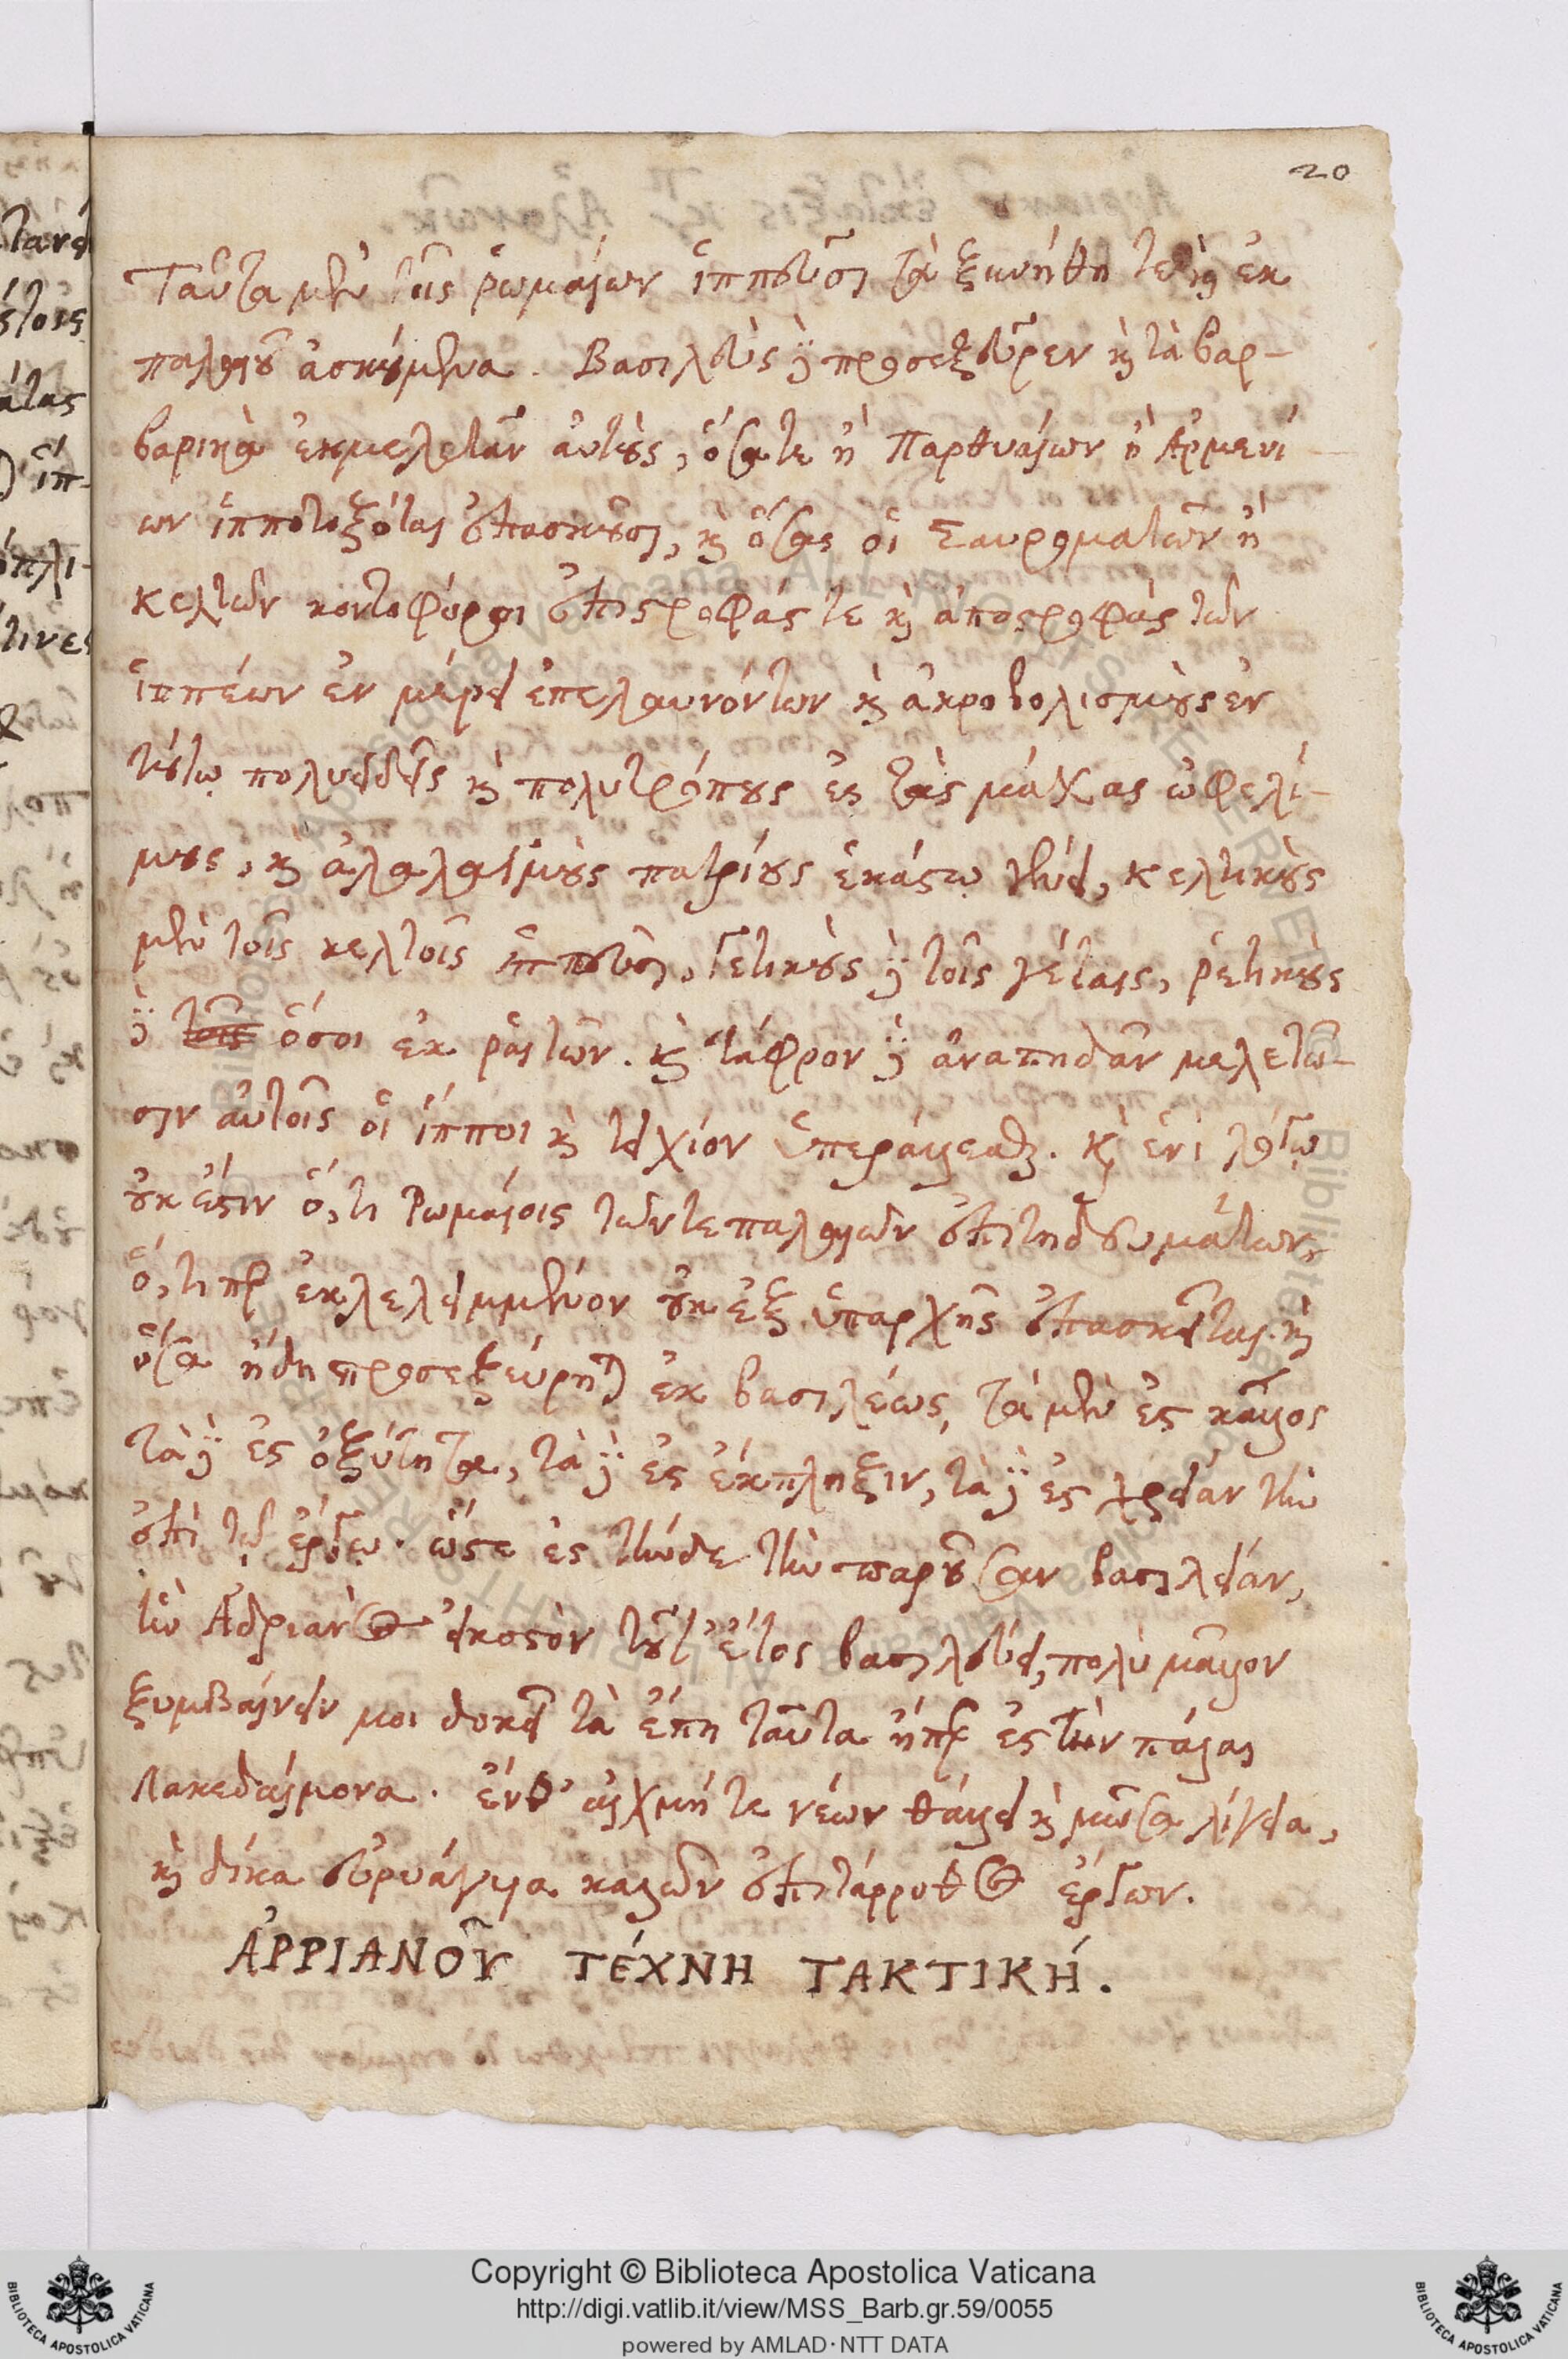 20
Ταῦτα μὲν τοῖς ῥωμαίων ἱππεῦσι τὰ ξυνήθη τε καὶ ἐκ
παλαιοῦ ἀσκούμενα. Βασιλεὺς δὲ προσεξεῦρεν καὶ τὰ βαρ-
βαρικὰ ἐκμελετᾶν αὐτοὺς, ὅσα τε ἢ Παρθυαίων ἢ Ἀρμενί
ων ἱπποτοξόται ἐπασκοῦσι, καὶ ὅσας οἱ Σαυροματῶν ἢ
κελτῶν κοντοφόροι ἐπιστροφάς τε καὶ ἀποστροφὰς τῶν
ἱππέων ἐν μέρει ἐπελαυνόντων καὶ ἀκροβολισμοὺς ἐν
τούτῳ πολυειδεῖς καὶ πολυτρόπους ἐς τὰς μάχας ὠφελί-
μους, καὶ ἀλαλαγμοὺς πατρίους ἑκάστῳ γένει, κελτικοὺς
μὲν τοῖς κελτοῖς ἱππεῦσι, Γετικοὺς δὲ τοῖς γέταις, ῥετικοὺς
δὲ τοῖς ὅσοι ἐκ ῥαιτῶν. καὶ τάφρον δὲ ἀναπηδᾶν μελετῶ-
σιν αὐτοῖς οἱ ἵπποι καὶ τειχίον ὑπεράλλεσθαι. καὶ ἑνὶ λόγῳ
οὐκ ἔστιν ὅ,τι Ρωμαίοις τῶν τε παλαιῶν ἐπιτηδευμάτων,
ὅ,τι περ ἐκλελειμμένον οὐκ ἐξ ὑπαρχῆς ἐπασκεῖται. καὶ
ὅσα ἤδη προσεξεύρηται ἐκ βασιλέως, τὰ μὲν ἐς κάλλος
τὰ δὲ ἐς ὀξύτητα, τὰ δὲ ἐς ἔκπληξιν, τὰ δὲ ἐς χρείαν τὴν
ἐπὶ τῷ ἔργῳ. ὥστε ἐς τήνδε τὴν παροῦσαν βασιλείαν,
ἣν Ἀδριανὸς εἰκοστὸν τοῦτ' ἔτος βασιλεύει, πολὺ μᾶλλον
ξυμβαίνειν μοι δοκεῖ τὰ ἔπη ταῦτα ἤπερ ἐς τὴν πάλαι
Λακεδαίμονα. ἔνθ' αἰχμή τε νέων θάλλει καὶ μῶσα λίγεια,
καὶ δίκα εὐρυάγυια καλῶν ἐπιτάρροθος ἔργων.
ἈΡΡΙΑΝΟῦ ΤΈΧΝΗ ΤΑΚΤΙΚΉ.
Copyright © Biblioteca Apostolica Vaticana
http://digi.vatlib.it/view/MSS_Barb.gr.59/0055
powered by AMLAD·NTT DATA